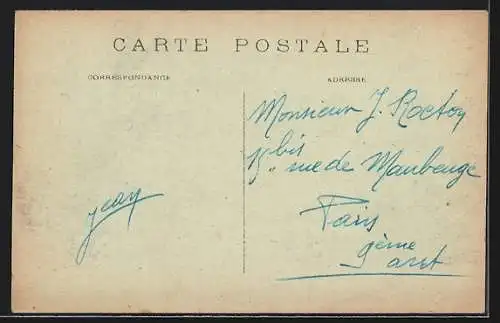 CARTE POSTALE
CORRESPONDANCE
ADRESSE
Monsieur J.
bis
rue de Maubeuge
Paris
9ème
arrt
Jean